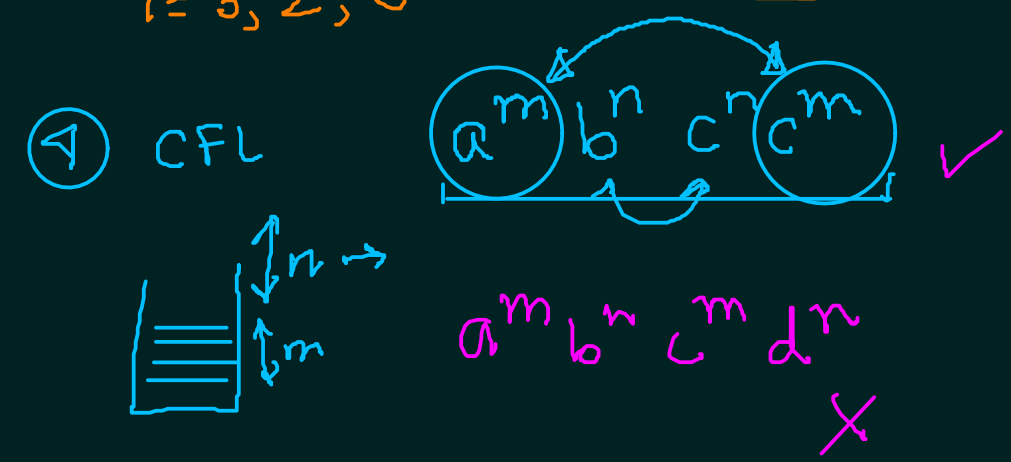 ④ CFL a^m b^n c^n c^m ✓
n →
m
a^m b^n c^m d^n
✗